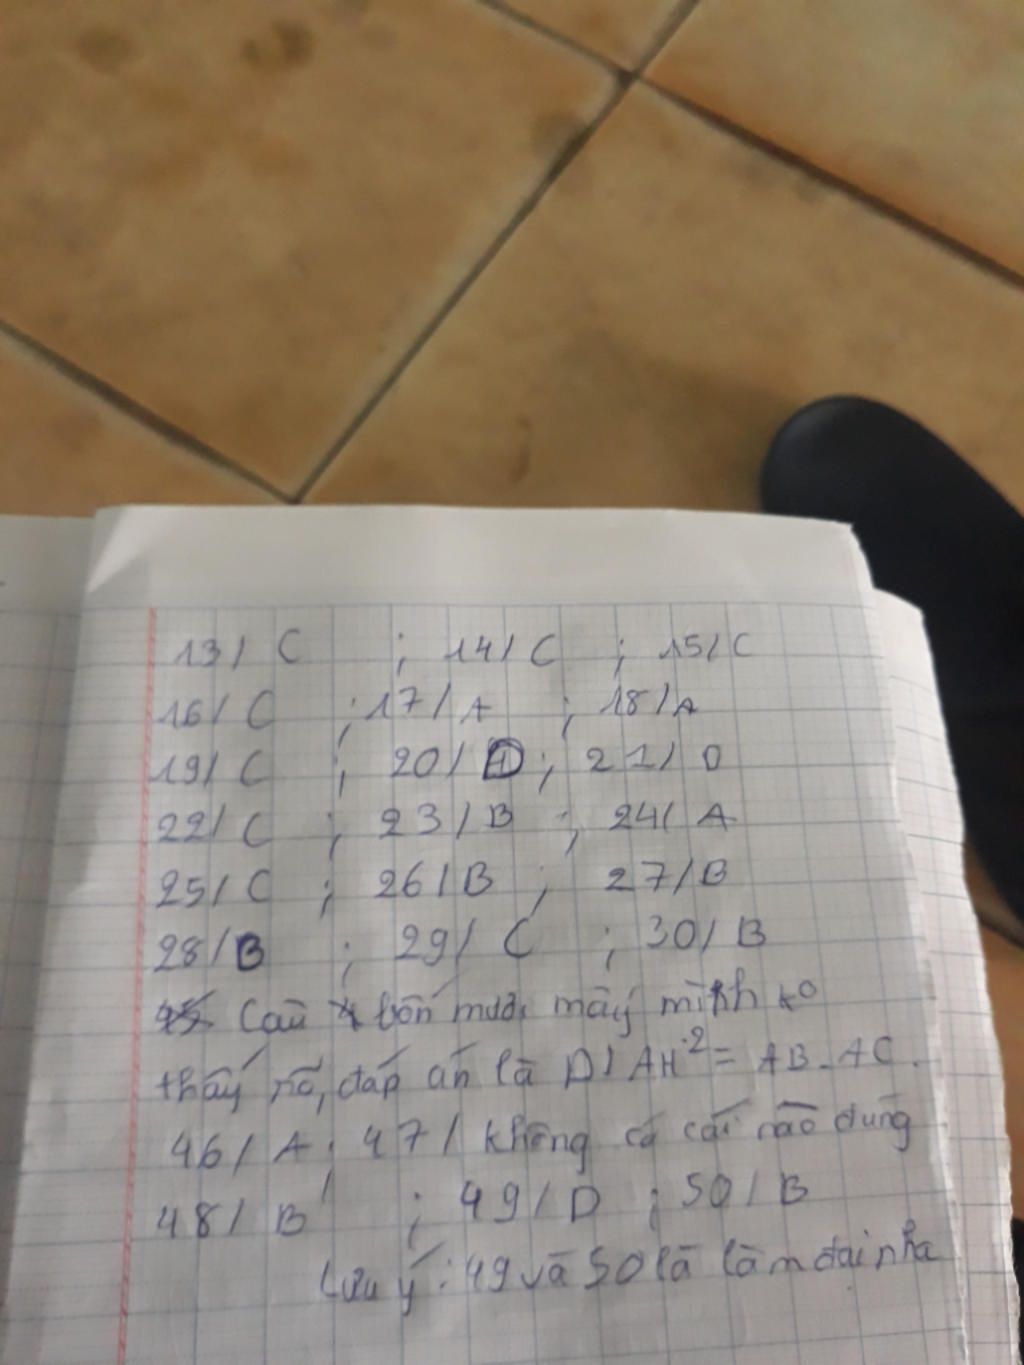 13/ C ; 14/ C ; 15/ C
16/ C ; 17/ A ; 18/ A
19/ C ; 20/ D ; 21/ D
22/ C ; 23/ B ; 24/ A
25/ C ; 26/ B ; 27/ B
28/ B ; 29/ C ; 30/ B
Câu bốn mươi mấy mình ko
thấy rõ, đáp án là D/ AH² = AB.AC.
46/ A ; 47/ không có cái nào đúng
48/ B ; 49/ D ; 50/ B
Lưu ý: 49 và 50 là làm đại nha